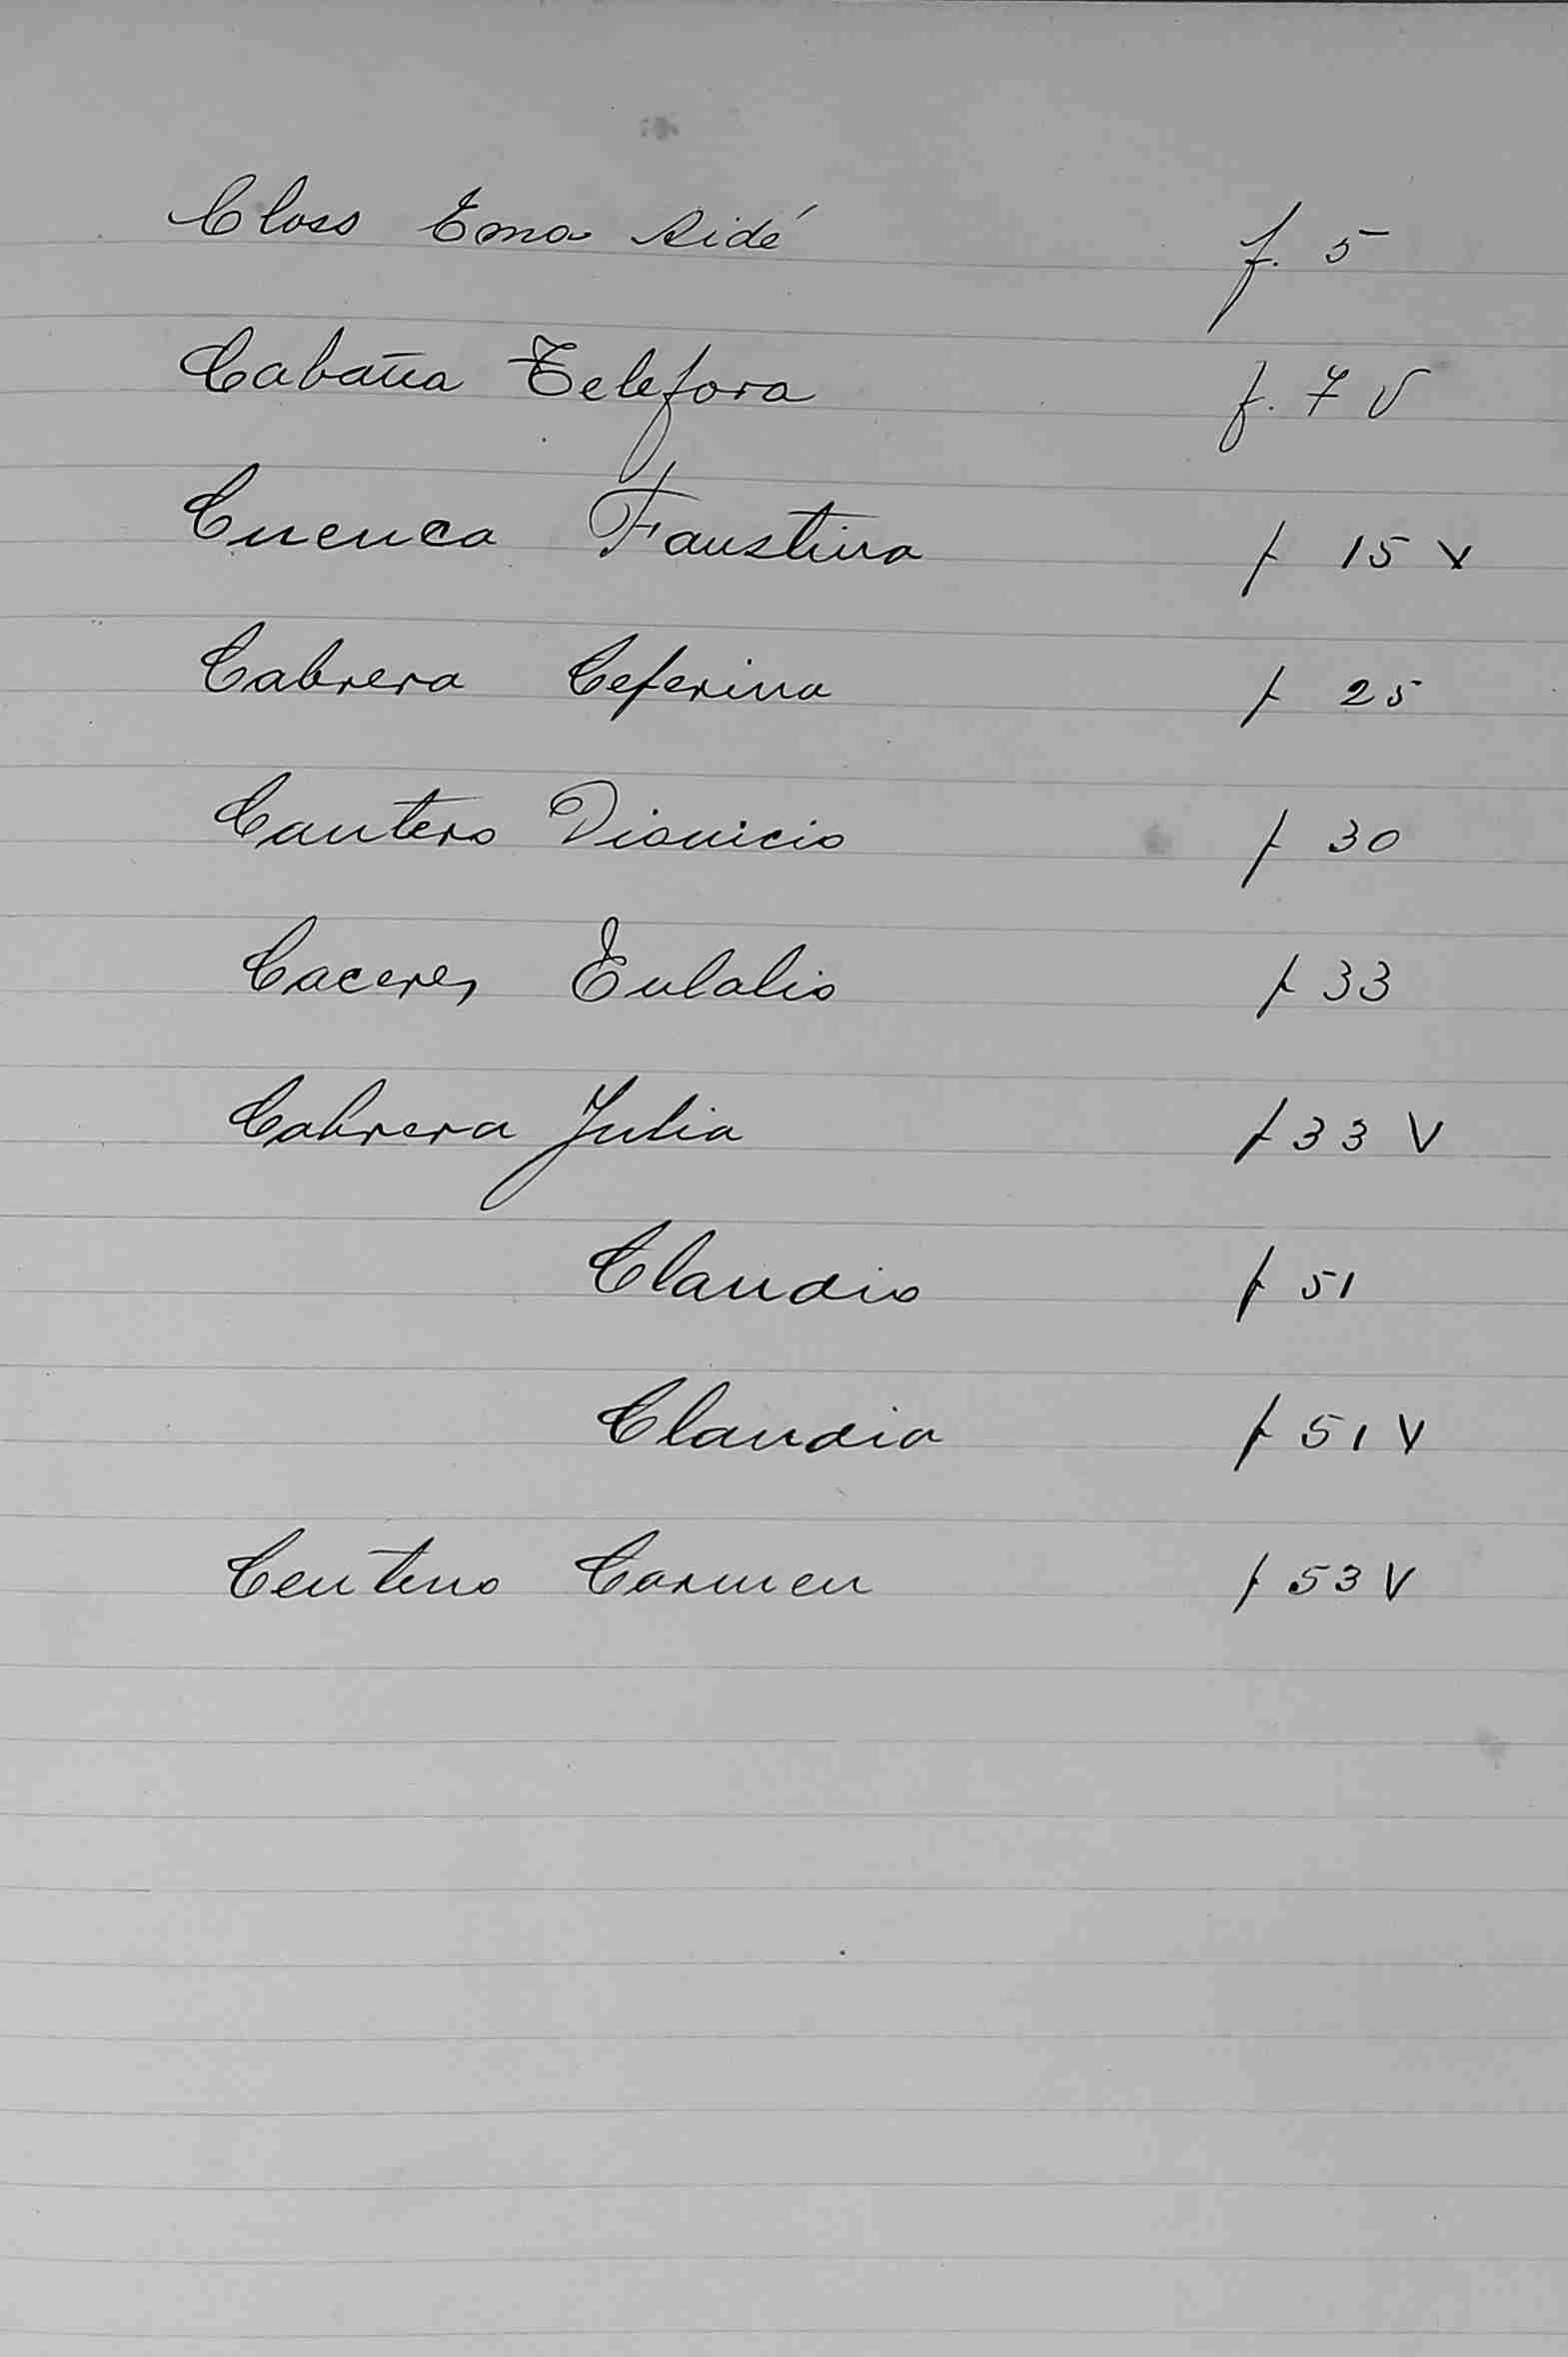 Closs Ema Aidé f. 5
Cabaña Telefora f. 7 V
Cuenca Faustina f 15 V
Cabrera Ceferina f 25
Cantero Dionicio f 30
Caceres Eulalio f 33
Cabrera Julia f 33 V
Claudio f 51
Claudia f 51 V
Centeno Carmen f 53 V